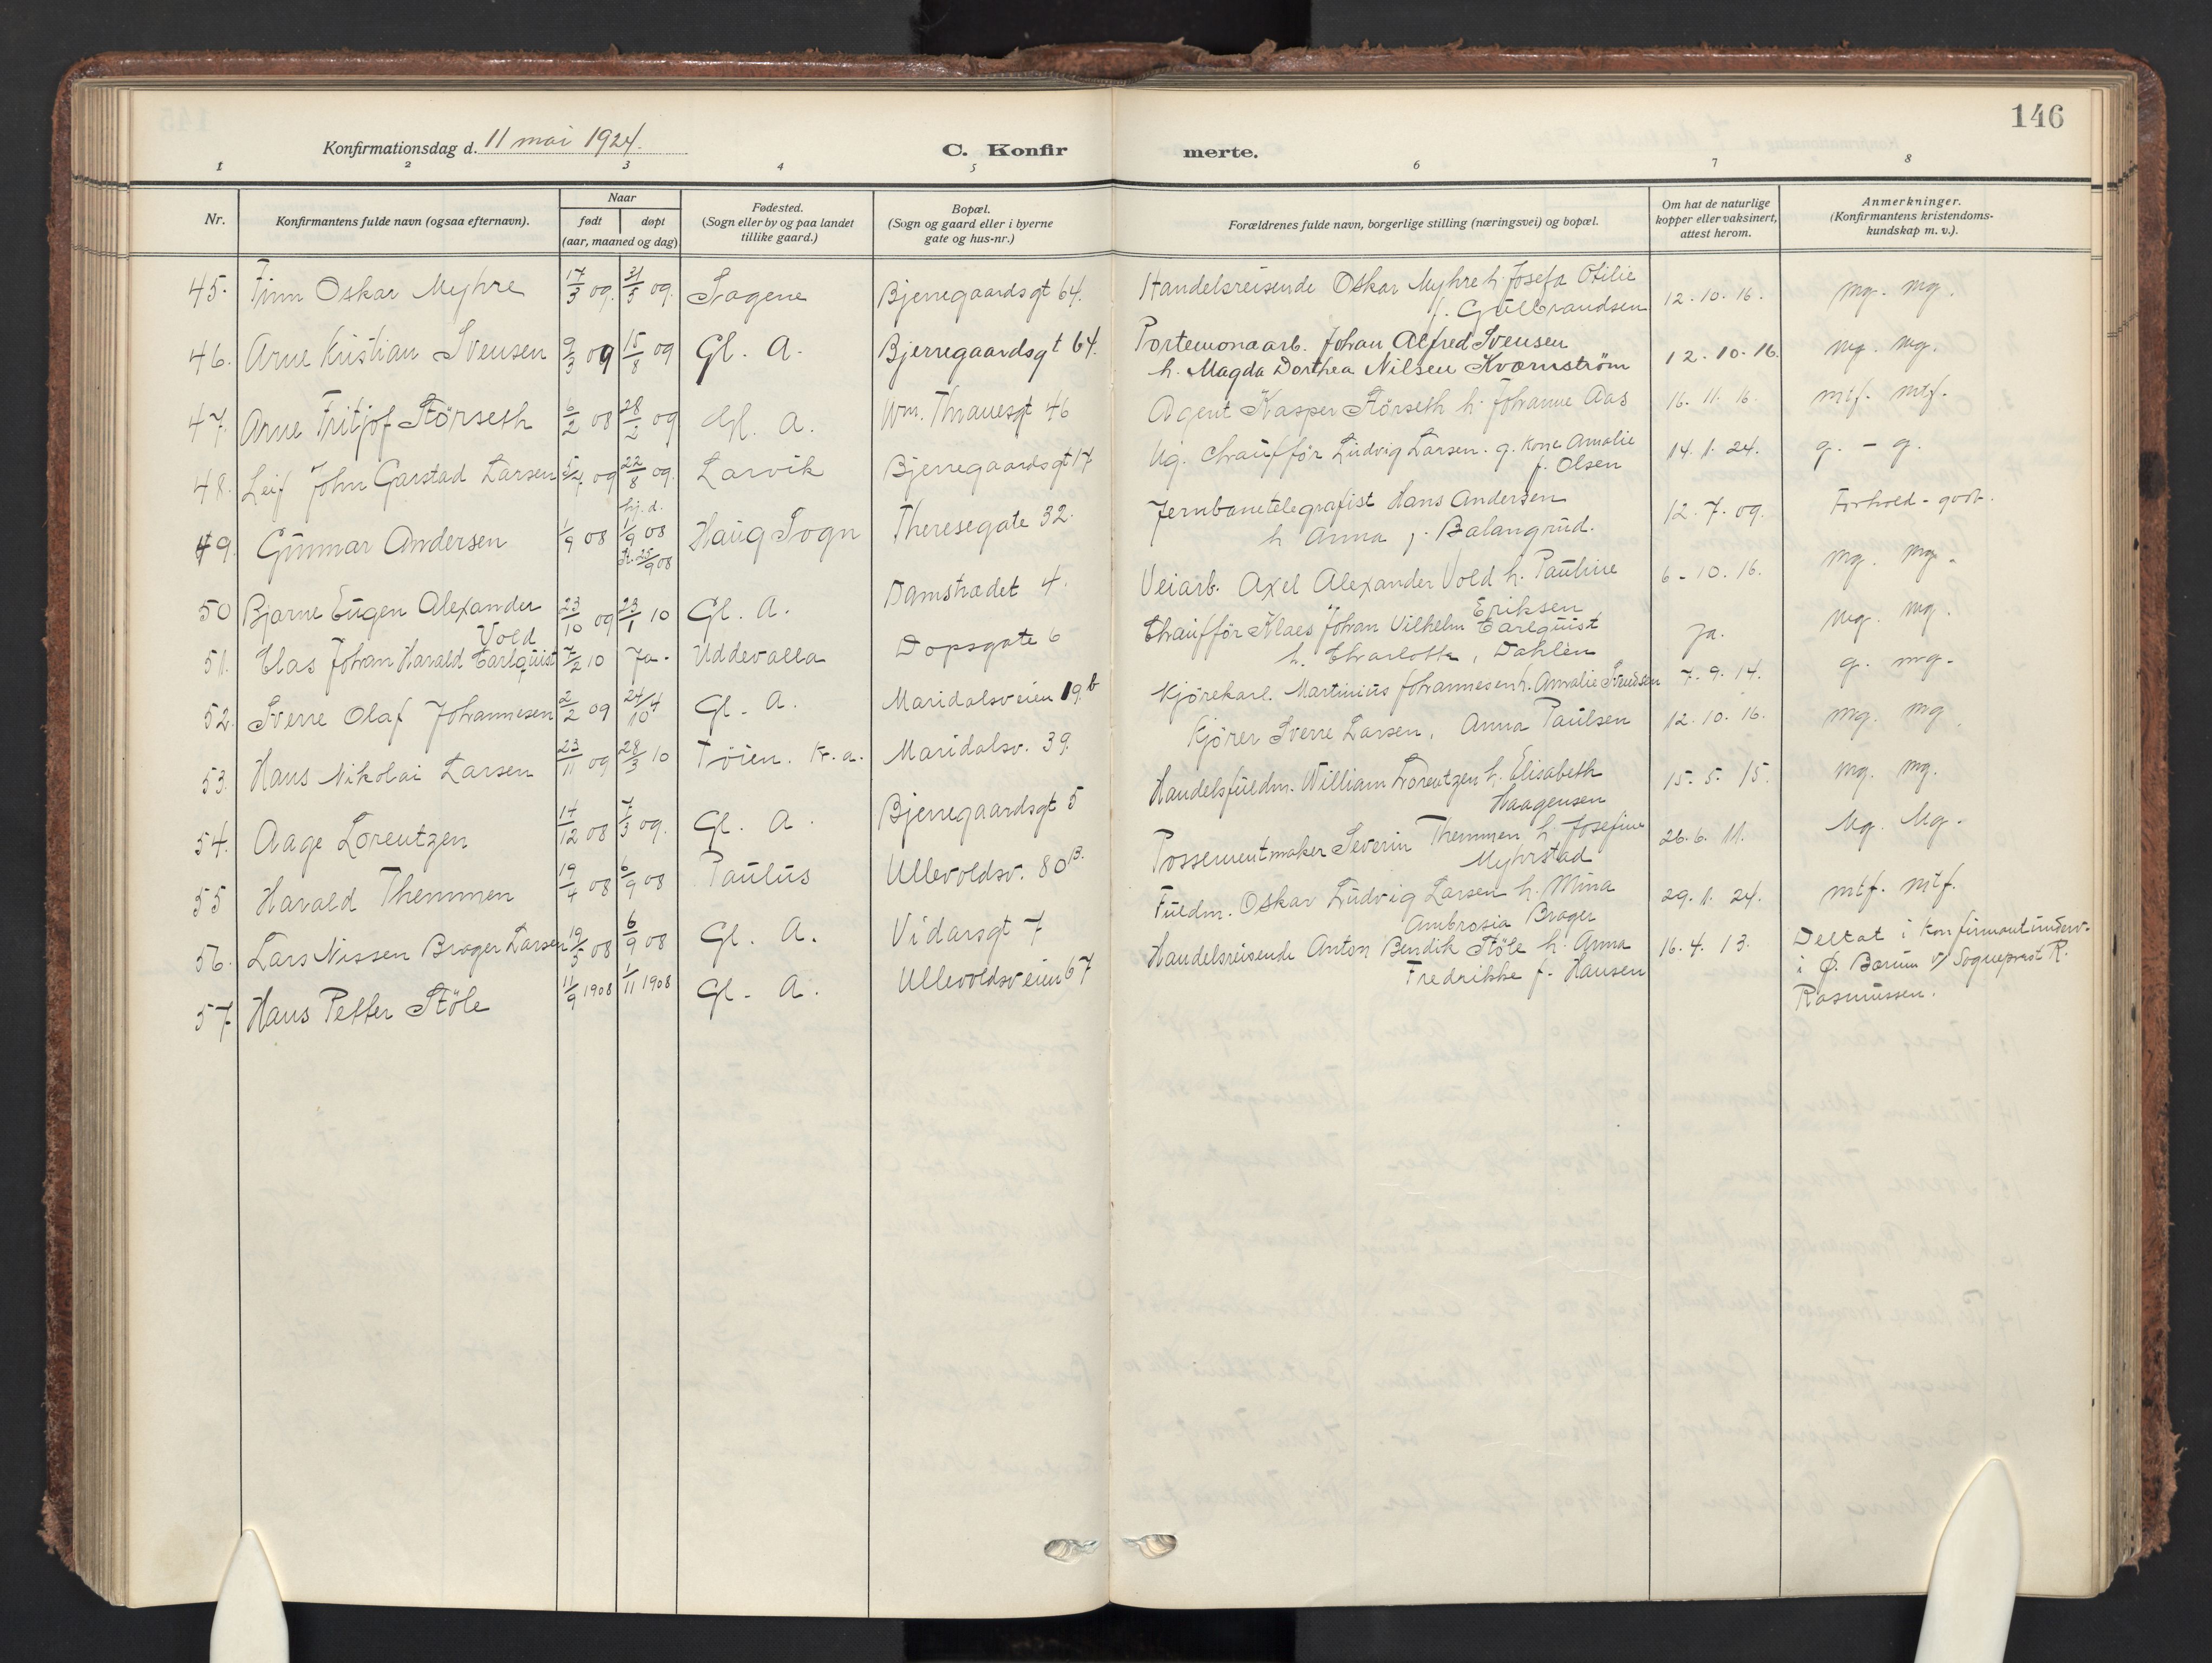 146
Konfirmationsdag d. 11 mai 1924.
C. Konfirmerte.
1 2 3 4 5 6 7 8
Nr. | Konfirmantens fulde navn (ogsaa efternavn). | Naar født døpt (aar, maaned og dag) | Fødested. (Sogn eller by og paa landet tillike gaard.) | Bopæl. (Sogn og gaard eller i byerne gate og hus-nr.) | Forældrenes fulde navn, borgerlige stilling (næringsvei) og bopæl. | Om hat de naturlige kopper eller vaksinert, attest herom. | Anmerkninger. (Konfirmantens kristendoms-kundskap m. v.).
45. Finn Oskar Myhre 17/3 09. 31/5 09. Sagene Bjerregaardsgt 64. Handelsreisende Oskar Myhre h. Josefa Otilie
f. Gulbrandsen 12.10.16. mg. mg.
46. Arne Kristian Svensen 9/3 09 15/8 09 Gl. A. Bjerregaardsgt 64. Portemonaarb. Johan Alfred Svensen
h. Magda Dorthea Nilsen Kvarnstrøm 12.10.16. mg. mg.
47. Arne Fritjof Störseth 6/2 08 28/2 09 Gl. A. Wm. Thranesgt 46 Agent Kasper Störseth h. Johanne Aas 16.11.16. mtf. mtf.
48. Leif John Garstad Larsen 09 22/8 09. Larvik Bjerregaardsgt 17 Ug. Chaufför Ludvig Larsen. g. kone Amalie
f. Olsen 14.1.24. g. - g.
49. Gunnar Andersen 1/9 08 hj. d. 1/9 08 25/9 08 Haug Sogn Theresegate 32. Jernbanetelegrafist Hans Andersen
h Anna f. Balangrud. 12.7.09. Forhold - godt.
50 Bjarne Eugen Alexander
Vold 23/10 09 23/1 10 Gl. A. Damstrædet 4. Veiarb. Axel Alexander Vold h. Pauline
Eriksen 6-10.16. mg. mg.
51. Clas Johan Harald Carlquist 7/2 10 Ja. Uddevalla Dopsgate 6 Chaufför Klaes Johan Vilhelm Carlquist
h. Charlotte, Dahlèn Ja. mg. mg.
52. Sverre Olaf Johannesen 2/2 09 24/4 10 Gl. A. Maridalsveien 19.b Kjørekarl. Martinius Johannesen h. Amalie 7.9.14. g. mg.
53. Hans Nikolai Larsen 23/11 09 28/3 10 Tøien. Kr.a. Maridalsv. 39. Kjører Sverre Larsen, Anna Paulsen 12.10.16. mg. mg.
54. Aage Lorentzen 14/12 08 7/3 09. Gl. A. Bjerregaardsgt 5 Handelsfuldm. William Lorentzen h. Elisabeth
Haagensen 15.5.15. mg. mg.
55 Harald Themmen 19/4 08 6/9 08 Paulus Ullevoldsv. 80B. Possementmaker Severin Themmen h. Josefine
Myhrstad 26.6.11. Mg. Mg.
56. Lars Nissen Brager Larsen 19/5 08 6/9 08 Gl. A. Vidarsgt 7 Fuldm. Oskar Ludvig Larsen h. Mina
Ambrosia Brager 29.1.24. mtf. mtf.
57. Hans Petter Støle 11/9 1908 1/11 1908 Gl. A. Ullevoldsveien 67 Handelsreisende Anton Bendik Støle h. Anna
Fredrikke f. Hansen 16.4.13. Deltat i konfirmantunderv.
i Ø. Bærum v/ Sogneprest R.
Rasmussen.